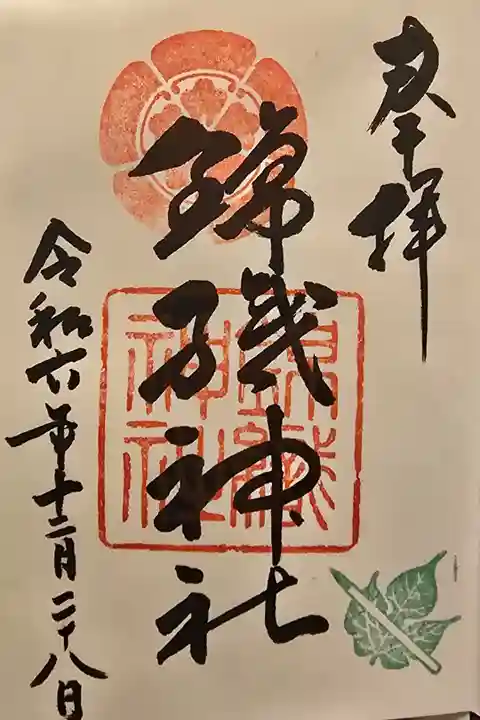 奉拝
錦織神社
錦織
神社
令和六年十二月二十八日